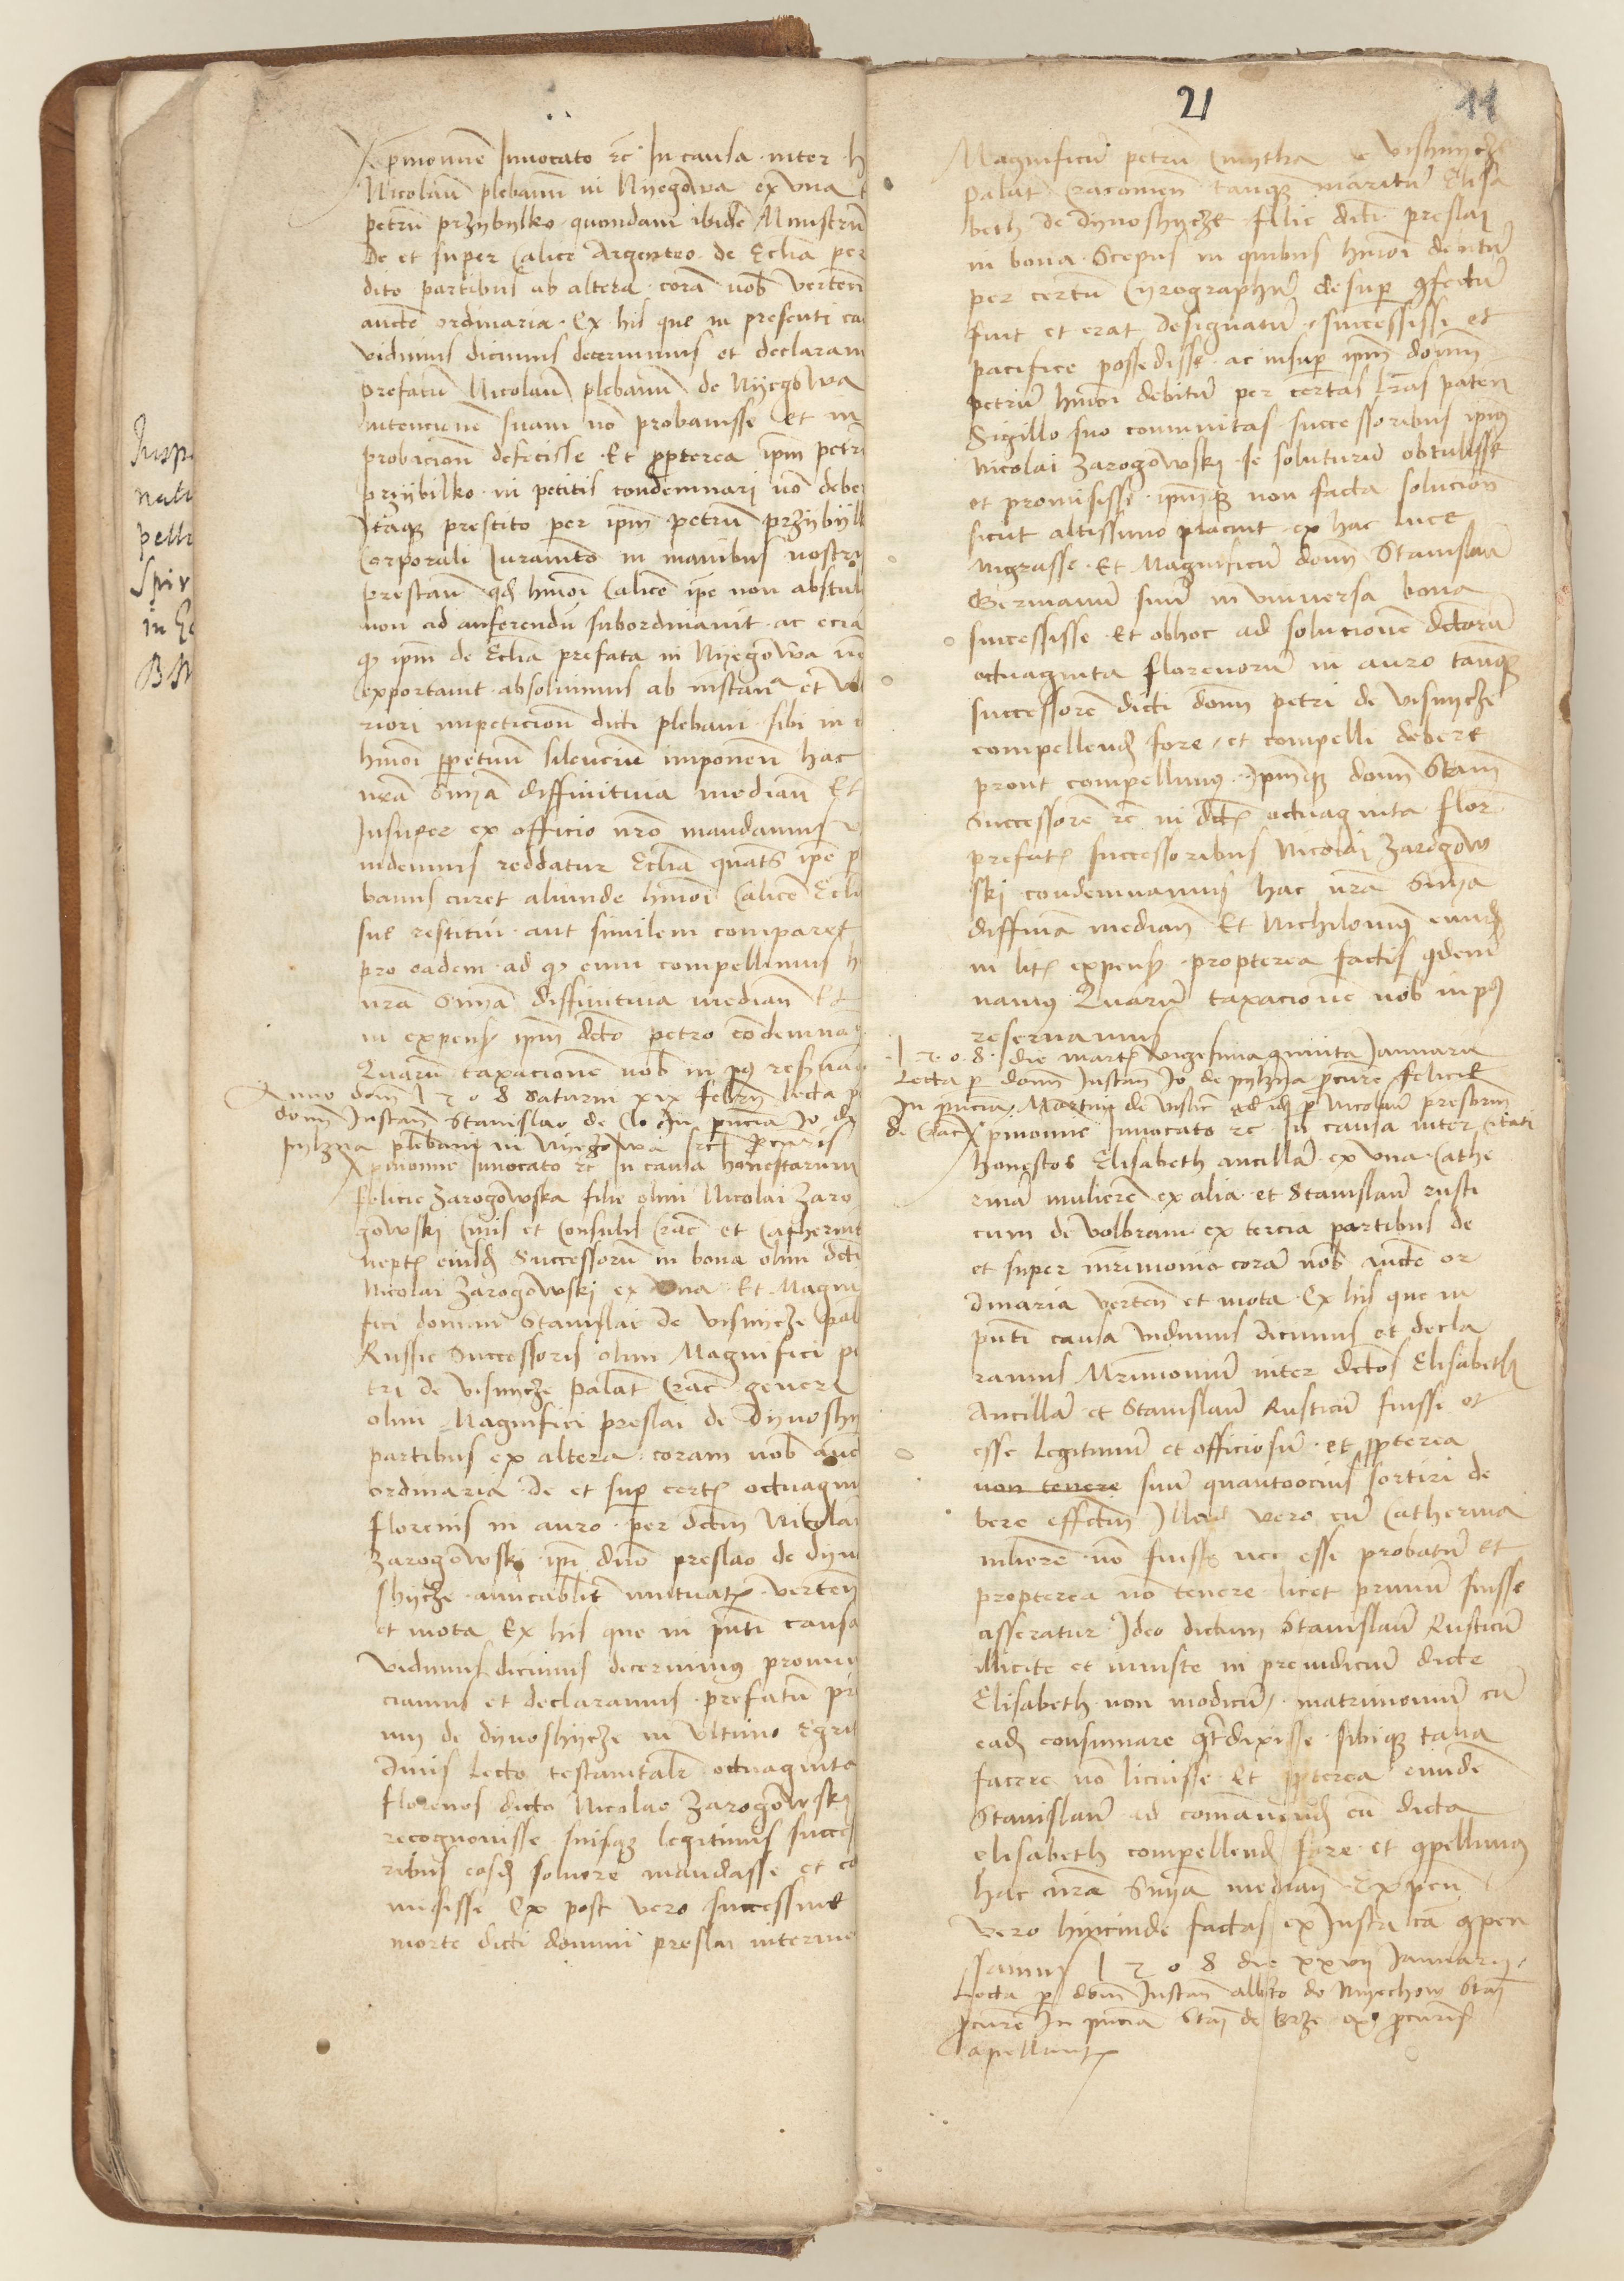 Xp̄i nomine Invocato rc̄ In causa inter h
Nicolaū plebanū in Nyegowa ex vna
petrū przybylko quondam ibidē Ministrū
de et super Calice Argenteo de Ecclīa per
dito partibus ab altera corā nob̄ verten̄
aucte ordinaria Ex his que in presenti ca
vidimus dicimus decernimus et declaram
prefatū Nicolaū plebanū de Nyegowa
Intencionē suam nō probavisse et in
probacion̄ defecisse Et ꝓpterea ipm̄ petrū
przybilko in petitis condemnari nō debe
Itaqȝ prestito per ipm̄ petrū przybyl
Corporali Iuramto in manibus nostri
prestan̄ qd hmōi Calicē ipe non abstul
non ad auferendū subordinavit ac eciā
qȝ ipm̄ de Ecclīa prefata in Nyegowa nō
exportavit absolvimus ab instan̄ et vl
riori impeticion̄ dicti plebani sibi in
hmōi ꝑpetuū silenciū imponen̄ hac
nrā Sn̄ıa diffinitiva median̄ Et
Insuper ex officio nrō mandamus
indemnis reddatur Ecclīa quatȝ ipē p
banus curet aliunde hmōi Calicē Eccl
sue restitui aut similem comparet
pro eadem ad qȝ eum compellimus h
nrā Sn̄ıa diffinitiva median̄ Et
in expens ipm̄ dcto petro condemnā
Quarū taxacionē nob̄ in pȝ reservā
Anno dom̄ 1508 Saturni xix febrȳ lecta p
dom̄ Instan̄ Stanislao de Clo In pn̄cia Jo de
pylzna plebani in Nyegowa rc̄ ꝓcuris
Xp̄i nomine Invocato rc̄ In causa honestarum
Felicie Zarogowska filie olim Nicolai Zaro
gowski Civis et Consulis Crac̄ et Catherine
neptȝ eiusd Successorū in bona olim dcti
Nicolai Zarogowski ex vna Et Magni
fici domini Stanislai de visnycze pal
Russie Successoris olim Magnifici pe
tri de visnycze palat̄ Crac̄ generi
olim Magnifici preslai de Dynoshy
partibus ex altera coram nob̄ auc
ordinaria de et suꝑ certȝ octuagin
florenis in auro per dctm̄ Nicolaū
Zarogowski ipi dnō preslao de dyno
shycze amicabilit̄ mutuatȝ verten̄
et mota Ex his que in pn̄ti causa
vidimus dicimus decernimus pronun
ciamus et declaramus prefatū pre
de dynoshycze in vltimo Egri
dinis Lecto testamtalr̄ octuaginta
florenos dicto Nicolao Zarogowski
recognovisse suisqȝ legitimis succes
ribus eosd solvere mandasse et co
misisse Ex post vero successive
morte dicti domini preslai interve
21
11
Magnificū petrū Cmytha de vishnycze
palat̄ Cracovien̄ tanqȝ maritū Elisa
beth de dynoshycze filie dicti preslai
in bona Scepus in quibus hmōi debitū
per certū Cyrographū desuꝑ confectū
fuit et erat designatū successisse et
pacifice possedisse ac insuꝑ ipm̄ domn̄
petrū hmōi debitū per certas lrās paten̄
Sigillo suo communitas successoribus ipiȝ
Nicolai Zarogowski se soluturū obtulisse
et promisisse ipmqȝ non facta solucion̄
sicut altissimo placuit ex hac luce
migrasse Et Magnificū domn̄ Stanislaū
Germanū suū in vniversa bona
successisse Et obhoc ad solucionē dctorū
octuaginta florenorū in auro tanqȝ
successorē dicti domn̄ petri de visnycze
compellend fore et compelli debere
prout compellimus Ipmqȝ domn̄ Stanī
Successorē rc̄ in dctȝ octuaginta flor
prefatȝ successoribus Nicolai Zarogow
ski condemnamus hac nrā Sn̄ıa
diffinia median̄ Et Nichilominȝ eund
in litȝ expens propterea factis condem
namus Quarū taxacionē nob̄ in pȝ
reservamus
1508 die martȝ vigesimaquinta Januarii
Lecta p domn̄ Instan̄ Jo de pylzna ꝓcure felicie
In pn̄cia Martini de vislic̄ ad id ꝑ Nicolaū presbrm̄
de Crac̄ citati
Xp̄i nomine Invocato rc̄ In causa inter
honestos Elisabeth ancillā ex vna Cathe
rinā mulierē ex alia et Stanislaū rusti
cum de volbram ex tercia partibus de
et super mr̄imonio corā nob̄ aucte or
dinaria verten̄ et mota Ex his que in
pn̄ti causa vidimus dicimus et decla
ramus Mr̄imoniū inter dctos Elisabeth
Ancillā et Stanislaū Rusticū fuisse et
esse legitimū et officiosū et ꝓpterea
non tenere suū quantoocius sortiri de
bere effctm̄ Illad vero cū Catherina
mlierē nō fuisse nec esse probatū et
propterea nō tenere licet primū fuisse
asseratur Ideo dictum Stanislaū Rusticū
illicite et iniuste in preiudiciū dicte
Elisabeth non modicū matrimoniū cū
ead consumare contradixisse sibiqȝ talia
facere nō licuisse Et ꝓpterea eundē
Stanislaū ad comanend cū dicta
elisabeth compellend fore et compellimus
hac nrā Sn̄ıa median̄ Expen̄
vero hincinde factas ex Iusta cā compen
samus 1508 die xxvii Januarii
Lecta p dom̄ Instan̄ alb̄to de Myechow Stanī
ꝓcure In pn̄cia Stanī de Brze ex ꝓcuris
apellantȝ